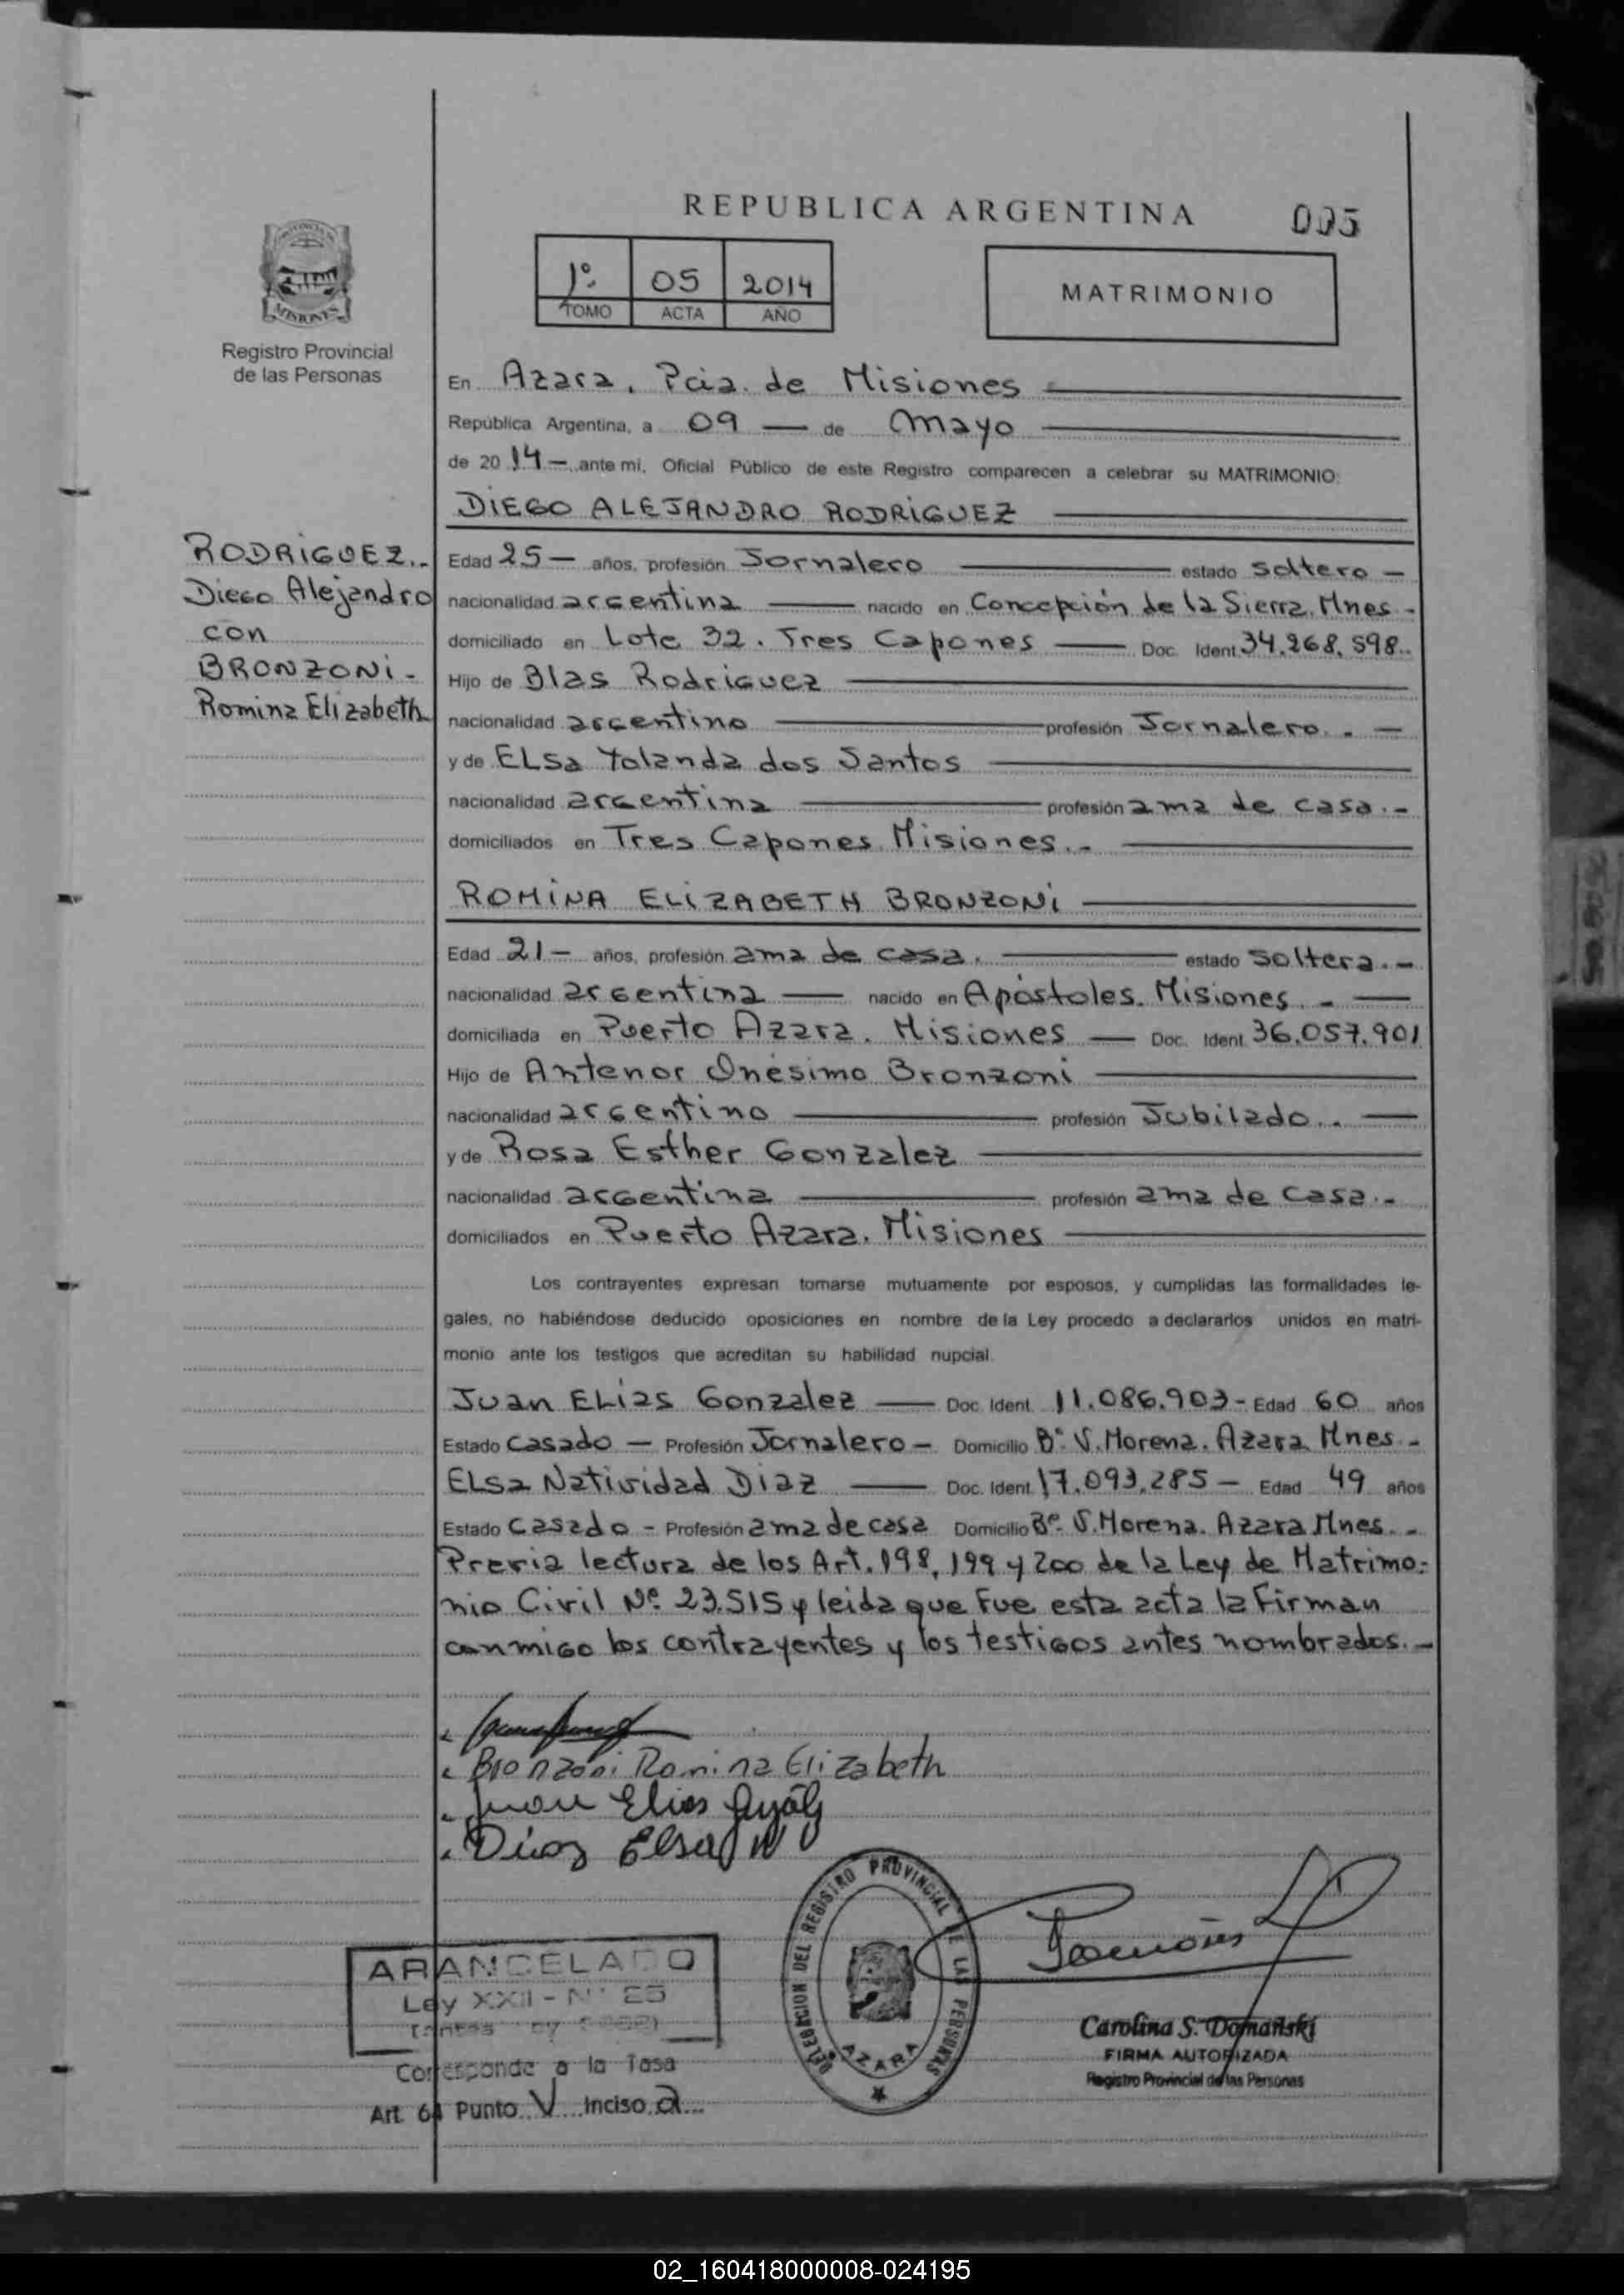 REPUBLICA ARGENTINA
005
1º 05 2014
TOMO ACTA AÑO
MATRIMONIO
PROVINCIA DE
MISIONES
Registro Provincial
de las Personas
RODRIGUEZ.-
Diego Alejandro
con
BRONZONI.-
Romina Elizabeth
En Azara. Pcia. de Misiones
República Argentina, a 09 — de Mayo
de 2014 — ante mi, Oficial Público de este Registro comparecen a celebrar su MATRIMONIO:
DIEGO ALEJANDRO RODRIGUEZ
Edad 25 — años, profesión Jornalero — estado soltero —
nacionalidad argentina — nacido en Concepción de la Sierra. Mnes.-
domiciliado en Lote 32. Tres Capones — Doc. Ident. 34.268.598.-
Hijo de Blas Rodriguez
nacionalidad argentino — profesión Jornalero. . —
y de ELSa Yolanda dos Santos
nacionalidad argentina — profesión ama de casa.-
domiciliados en Tres Capones. Misiones.-
ROMINA ELIZABETH BRONZONI
Edad 21 — años, profesión ama de casa. — estado soltera.-
nacionalidad argentina — nacido en Apóstoles. Misiones. - —
domiciliada en Puerto Azara. Misiones — Doc. Ident. 36.057.901
Hijo de Antenor Onésimo Bronzoni
nacionalidad argentino — profesión Jubilado.. —
y de Rosa Esther Gonzalez
nacionalidad argentina — profesión ama de casa.-
domiciliados en Puerto Azara. Misiones
Los contrayentes expresan tomarse mutuamente por esposos, y cumplidas las formalidades le-
gales, no habiéndose deducido oposiciones en nombre de la Ley procedo a declararlos unidos en matri-
monio ante los testigos que acreditan su habilidad nupcial.
Juan ELias Gonzalez — Doc. Ident. 11.086.903 - Edad 60 años
Estado Casado — Profesión Jornalero — Domicilio Bº V. Morena. Azara Mnes.-
ELSa Natividad Diaz — Doc. Ident. 17.093.285 — Edad 49 años
Estado Casado - Profesión ama de casa Domicilio Bº V. Morena. Azara Mnes.-
Previa lectura de los Art. 198, 199 y 200 de la Ley de Matrimo-
nio Civil Nº 23.515 y leida que fue esta acta la firman
conmigo los contrayentes y los testigos antes nombrados.-
Bronzoni Romina Elizabeth
Juan Elias
Diaz Elsa N
DELEGACION DEL REGISTRO PROVINCIAL DE LAS PERSONAS
AZARA
Carolina S. Domañski
FIRMA AUTORIZADA
Registro Provincial de las Personas
ARANCELADO
Ley XXII - Nº 25
Corresponde a la Tasa
Art. 64 Punto V Inciso a
02_160418000008-024195